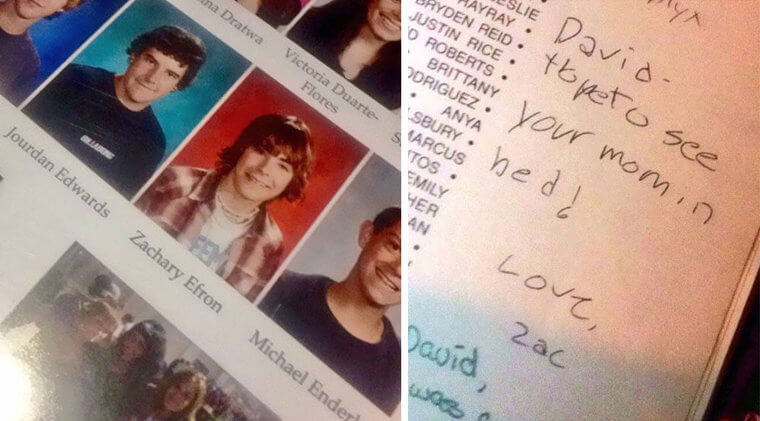 Dratwa
Victoria Duarte-
Flores
Jourdan Edwards
Zachary Efron
Michael Ender
ESLIE
RAYRAY •
BRYDEN REID •
JUSTIN RICE •
ROBERTS •
BRITTANY
ODRIGUEZ •
ANYA
LSBURY •
MARCUS
TOS •
EMILY
HER
AN
David-
Hope to see
your mom in
bed!
Love,
Zac
David,